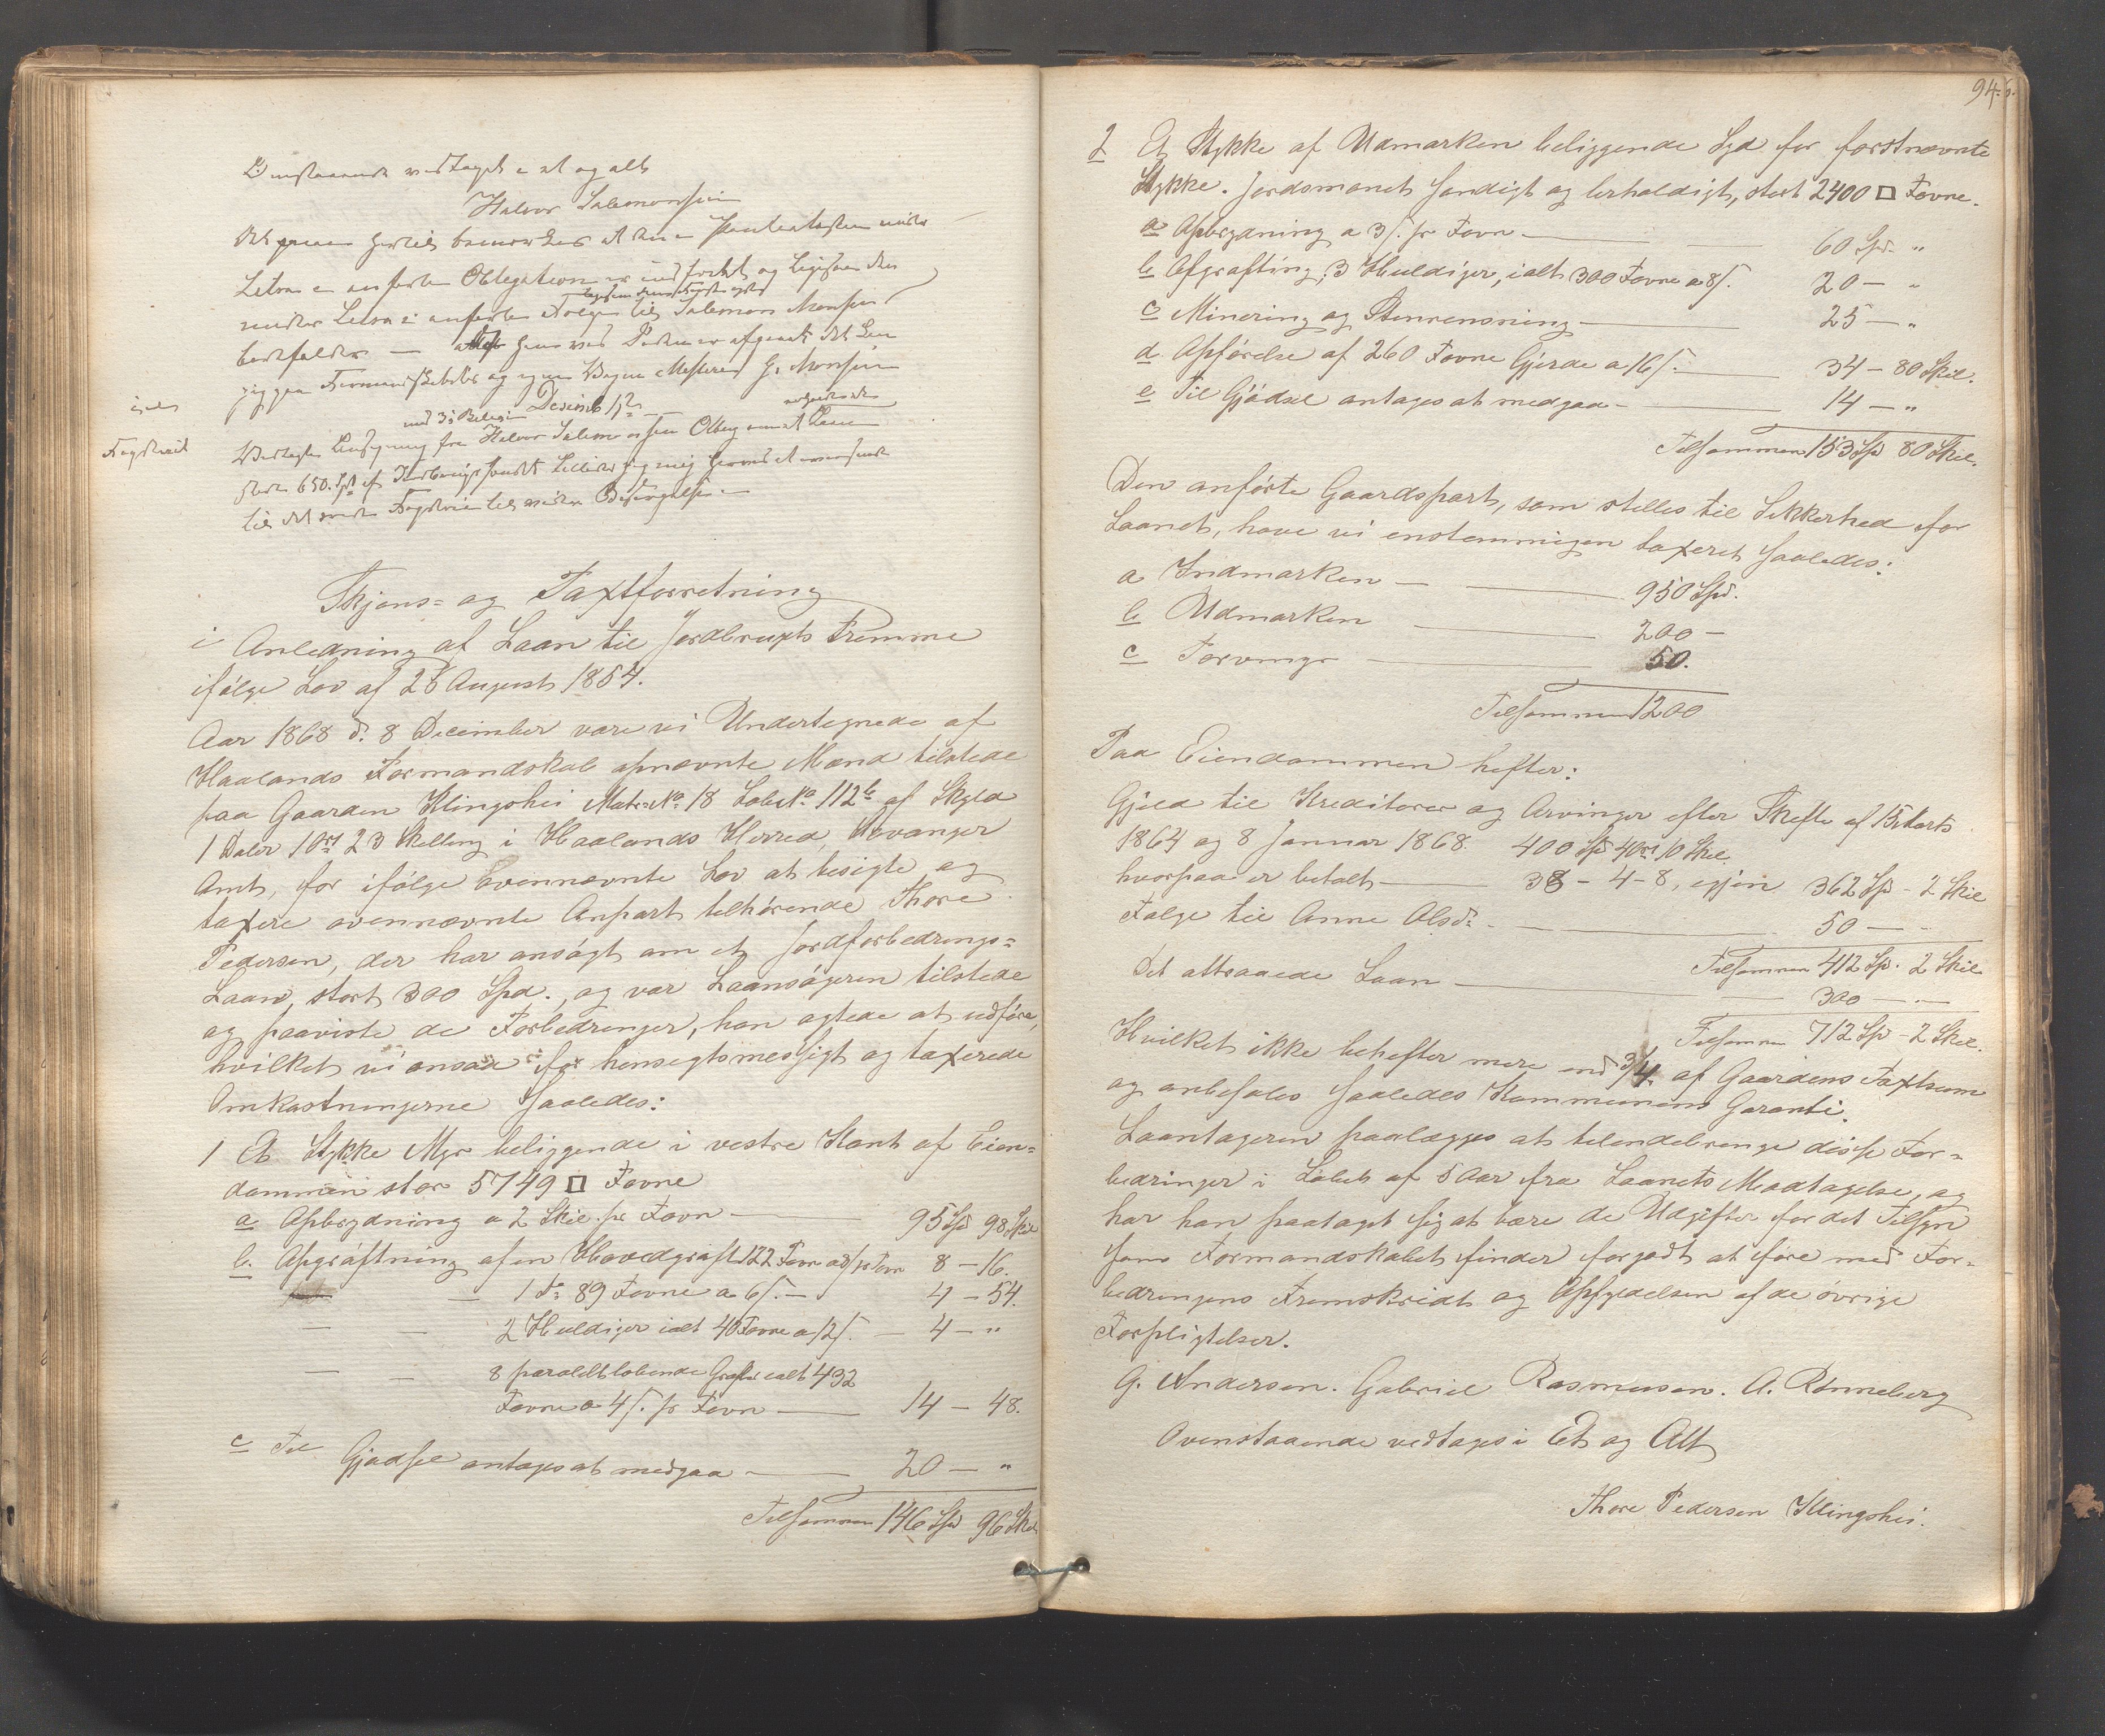 Ovenstaaende vedtages i et og alt
Halvor Salomonsen
bemærkes at
anførte Obligation er indfriet og ligesaa den
under Litra anførte Følge til Salomon Monsen
bortfalder
Formandskabets og G. Monsen
Halvor Salomonsen om et Laan
stort 650 Spd af
til det videre Besørgelse
Skjøns- og Taxtforretning
i Anledning af Laan til Jordbrugets Fremme
ifølge Lov af 26 August 1854.
Aar 1868 d. 8 December vare vi Undertegnede af
Haalands Formandskab opnævnte Mænd tilstede
paa Gaarden Klingshei Matr. No 18 Løbe No 112b af Skyld
1 Daler 1 Ort 23 Skilling i Haalands Herred, Stavanger
Amt, for ifølge ovennævnte Lov at besigte og
taxere ovennævnte Anpart tilhørende Thore
Pedersen, der har ansøgt om et Jordforbedrings=
Laan, stort 300 Spd., og var Laansøgeren tilstede
og paaviste de Forbedringer, han agtede at udføre,
hvilket vi ansaa for hensegtsmessigt og taxerede
Omkostningerne saaledes:
1 Et Stykke Myr beliggende i vestre Kant af Eien=
dommen stor 5749 □ Favne
a Opbrydning a 2 Skil. pr Favn — 95 Spd 98 Skil
b. Opgrøftning af en Hovedgrøft 122 Favn a 8/ pr Favn 8 — 16.
— 1 Do 89 Favne a 6/. — 4 — 54.
— — 2 Huldiger ialt 40 Favne a 12/. — 4 — "
— — 8 paralelt løbende Grøfter ialt 432
Favne a 4/. pr Favn — 14 — 48.
c Til Gjødsel antages at medgaa — 20 — "
Tilsammen 146 Spd 96 Skil
94.
2 Et Stykke af Udmarken beliggende Syd for førstnævnte
Stykke. Jordsmonet sandigt og lerholdigt, stort 2400 □ Favne.
a Opbrydning a 3/. pr Favn — 60 Spd. "
b Afgrøfting, 3 Huldiger, ialt 300 Favne a 8/. 20 — "
c Minering og Stenrensning — 25 — "
d. Opførelse af 260 Favne Gjerde a 16/. — 34 — 80 Skil.
e Til Gjødsel antages at medgaa — 14 — "
Tilsammen 153 Spd 80 Skil.
Den anførte Gaardspart, som stilles til Sikkerhed for
Laanet, have vi enstemmigen taxeret saaledes:
a Indmarken — 950 Spd.
b Udmarken — 200 —
c Torvmyr — 50.
Tilsammen 1200
Paa Eiendommen hefter:
Gjeld til Kreditorer og Arvinger efter Skifte af 15 Marts
1864 og 8 Januar 1868. 400 Spd 4 Ort 10 Skil.
hvorpaa er betalt — 38 — 4 — 8, igjen 362 Spd — 2 Skil
Følge til Anne Olsd. — 50 — "
Tilsammen 412 Spd. 2 Skil
Det attraaede Laan — 300 — "
Tilsammen 712 Spd — 2 Skil.
Hvilket ikke behefter mere end 3/4 af Gaardens Taxtsum
og anbefales saaledes Kommunens Garanti.
Laantageren paalægges at tilendebringe disse For=
bedringer i Løbet af 5 Aar fra Laanets Modtagelse, og
har han paataget sig at bære de Udgifter for det Tilsyn
som Formandskabet finder forgodt at føre med For=
bedringens Fremskridt og Opfyldelsen af de øvrige
Forpligtelser.
G. Andersen. Gabriel Rasmussen. A. Rønneberg
Ovenstaaende vedtages i Et og Alt
Thore Pedersen Klingshei.